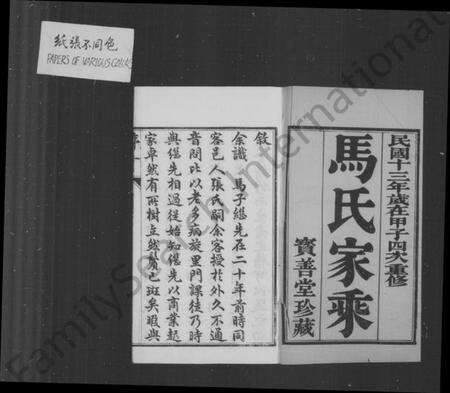 纸張不同色
PAPERS OF VARIOUS COLORS
民國十三年歲在甲子四次重修
馬氏家乘
寶善堂珍藏
敘
余識 馬子緝先在二十年前時同
客邑人張氏嗣余客授於外久不通
音問比以老多病旋里門課徒乃時
與緝先相過從始知緝先以商業起
家卓然有所樹立然鬢已斑矣暇與
FamilySearch International